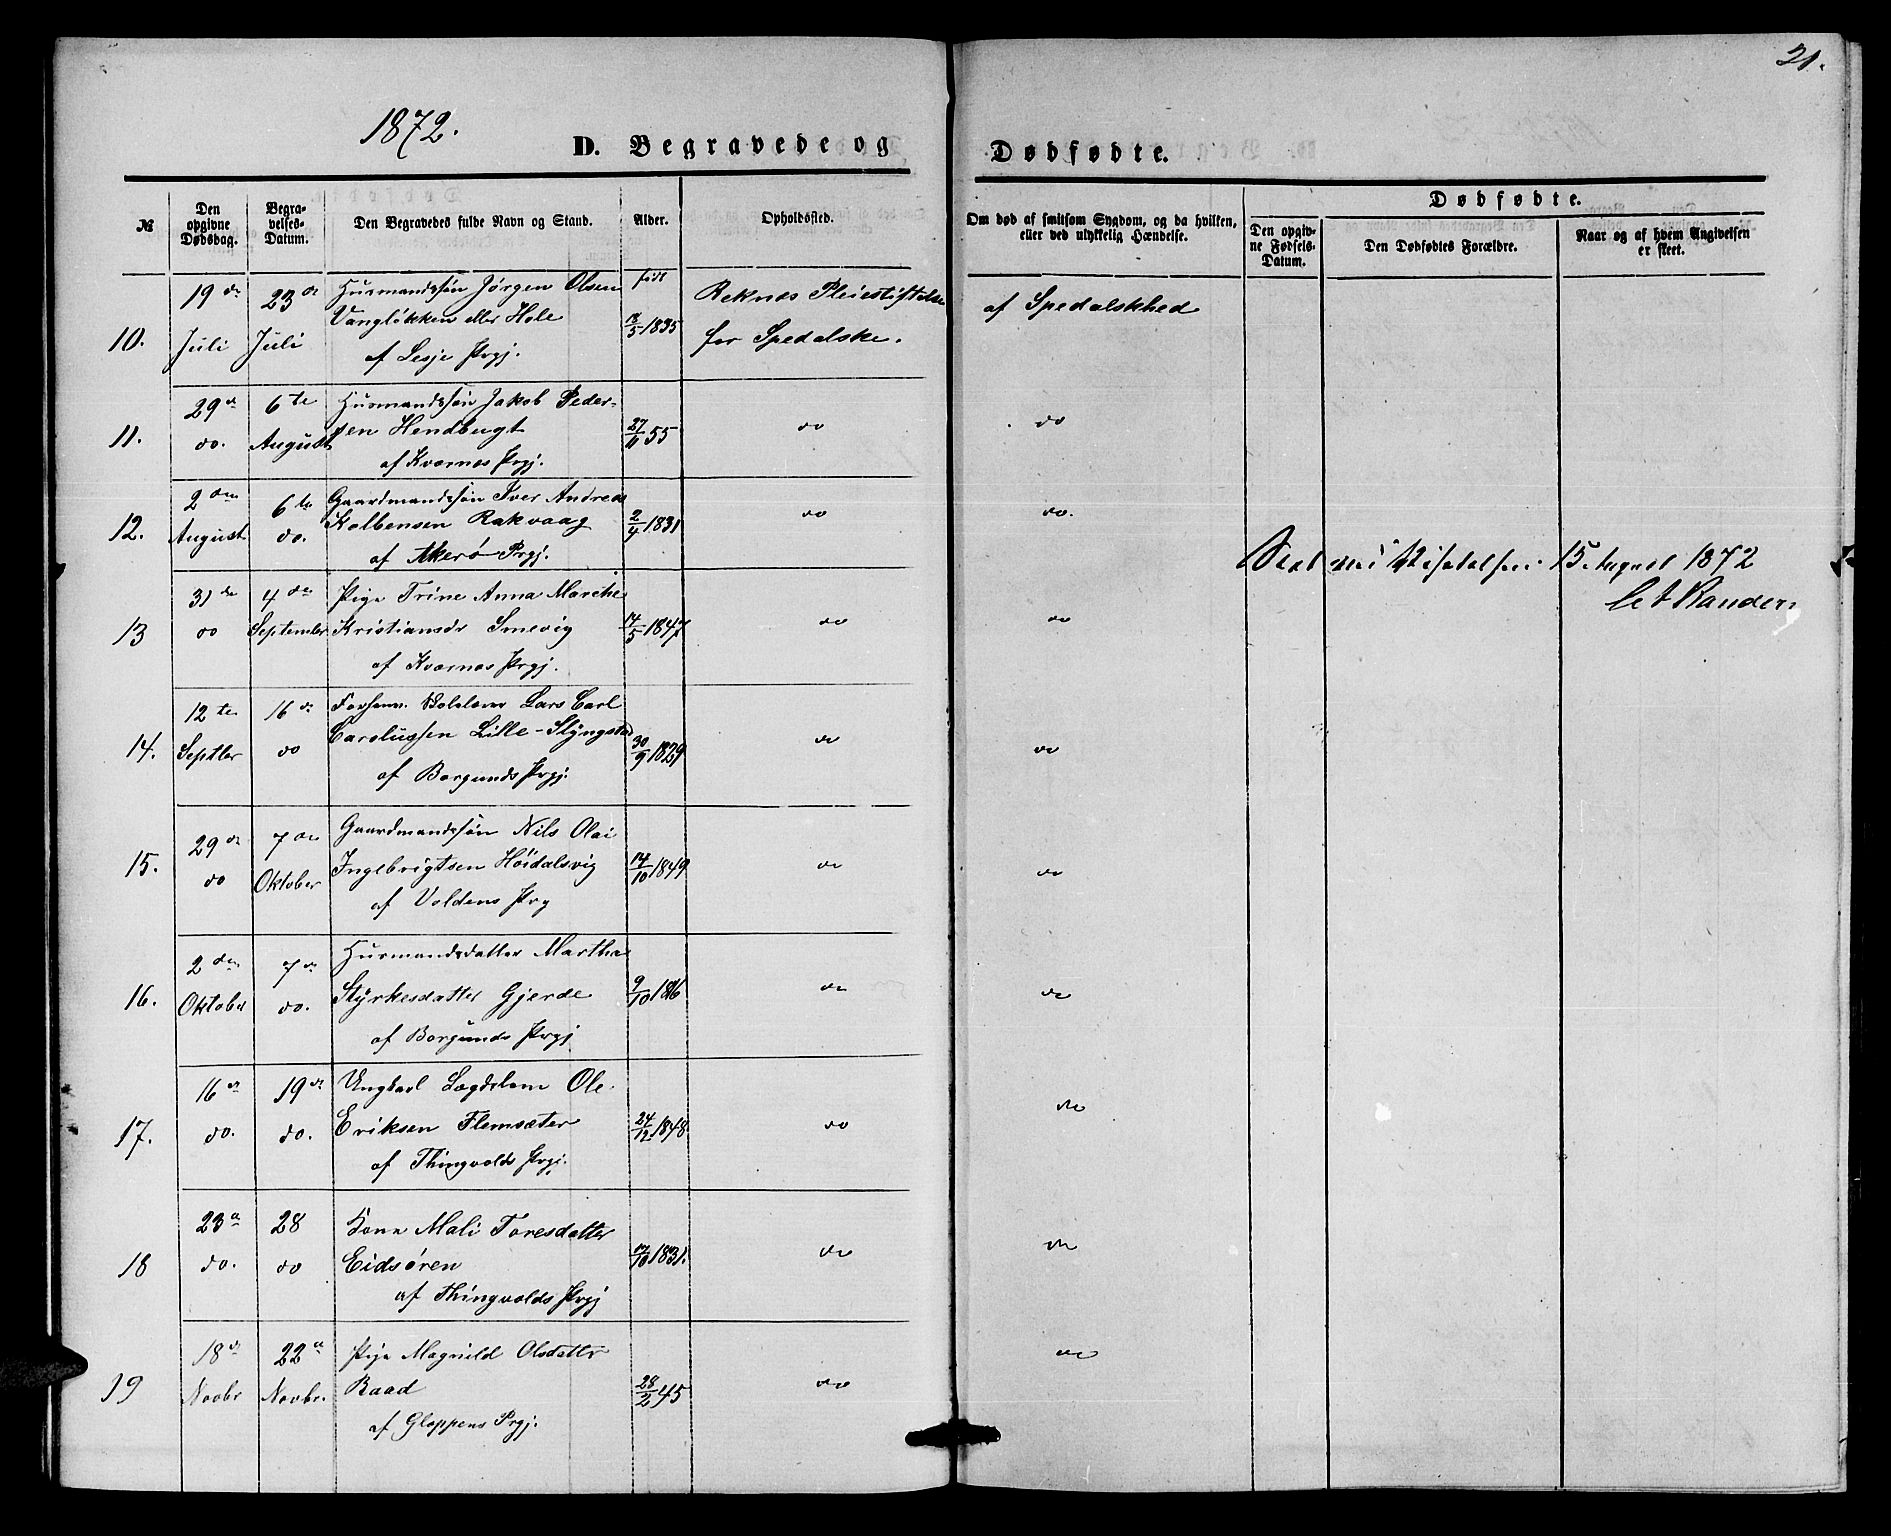 21.
1872.
D. Begravede og Dødfødte.
№
Den opgivne Dødsdag.
Begravelses-Datum.
Den Begravedes fulde Navn og Stand.
Alder.
Opholdssted.
Om død af smitsom Sygdom, og da hvilken, eller ved ulykkelig Hændelse.
Dødfødte.
Den opgivne Fødsels-Datum.
Den Dødfødtes Forældre.
Naar og af hvem Angivelsen er skeet.
10.
19de Juli
23de Juli
Husmandssøn Jørgen Olsen
Vangløkken eller Hole
af Lesje Prgj.
født
18/5 1835
Reknes Pleiestiftelse
for Spedalske.
af Spedalskhed
11.
29de do.
6te August
Husmandssøn Jakob Peder-
sen Hendbugt
af Kvernes Prgj.
27/11 55
do
do
12.
2den August
6te do.
Gaardmandssøn Iver Andreas
Kolbensen Rakvaag
af Akerø Prgj.
2/4 1831
do
do.
15. August 1872
13
31de do
4de September
Pige Trine Anna Marthe
Kristiansdr Smevig
af Kvernes Prgj.
14/5 1847
do
do
14.
12te Septbr
16de do
Lars Carl
Carolussen Lille-Slyngstad
af Borgunds Prgj.
30/9 1829
do
do
15.
29de do
7de Oktober
Gaardmandssøn Nils Olai
Ingebrigtsen Høidalsvig
af Voldens Prg
14/10 1849
do
do
16.
2den Oktober
7de do.
Husmandsdatter Martha
Styrkesdatter Gjerde
af Borgunds Prgj
9/10
do
do
17.
16de do.
19de do.
Ungkarl Lægdslem Ole
Eriksen Flemsæter
af Thingvolds Prgj.
24/12 1848
do
do
18
23de do.
28 do
Kone Mali Toresdatter
Eidsøren
af Thingvolds Prgj
1831.
do
do
19
18de Novbr
22de Novbr.
Pige Magnild Olsdatter
Raad
af Gloppens Prgj.
28/2 45
do
do